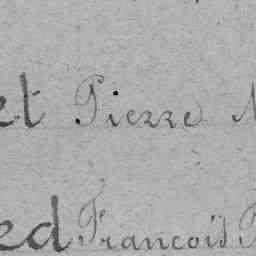 et Pierre
ed François